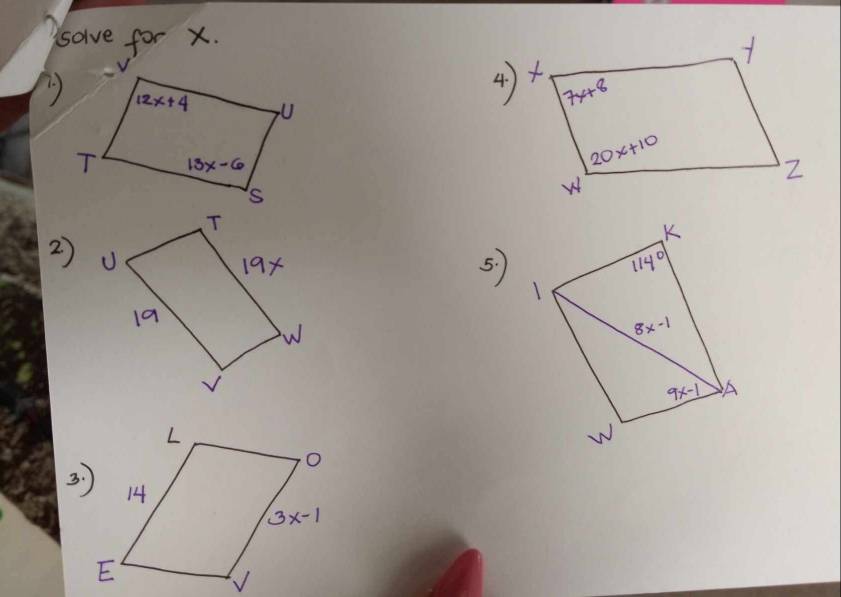 solve for X.
1.)
V
12x+4
U
T
13x-6
S
2.)
T
U
19x
19
W
V
3.)
L
O
14
3x-1
E
V
4.)
X
Y
7x+8
20x+10
W
Z
5.)
K
114°
I
8x-1
9x-1
A
W